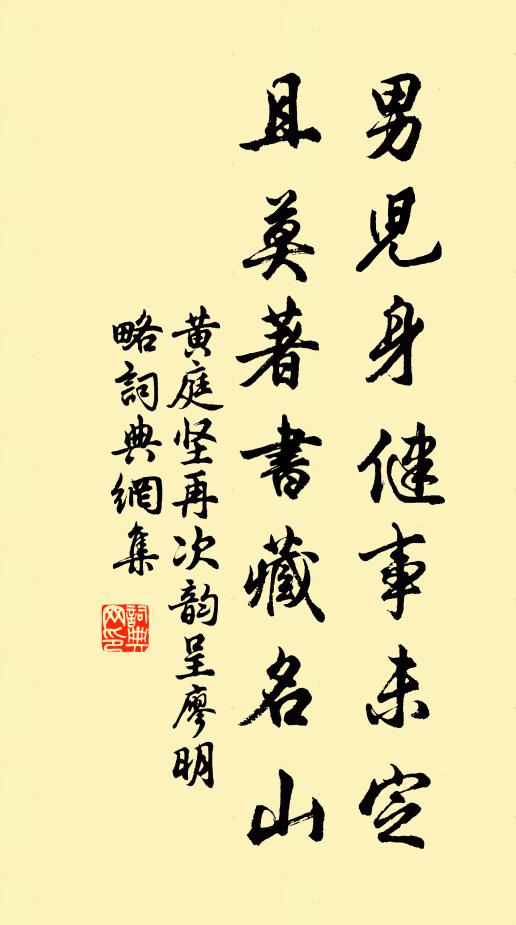 男児身健事未定
且莫著書藏名山
黄庭坚再次韵呈廖明
略詞典網集
詞典網印